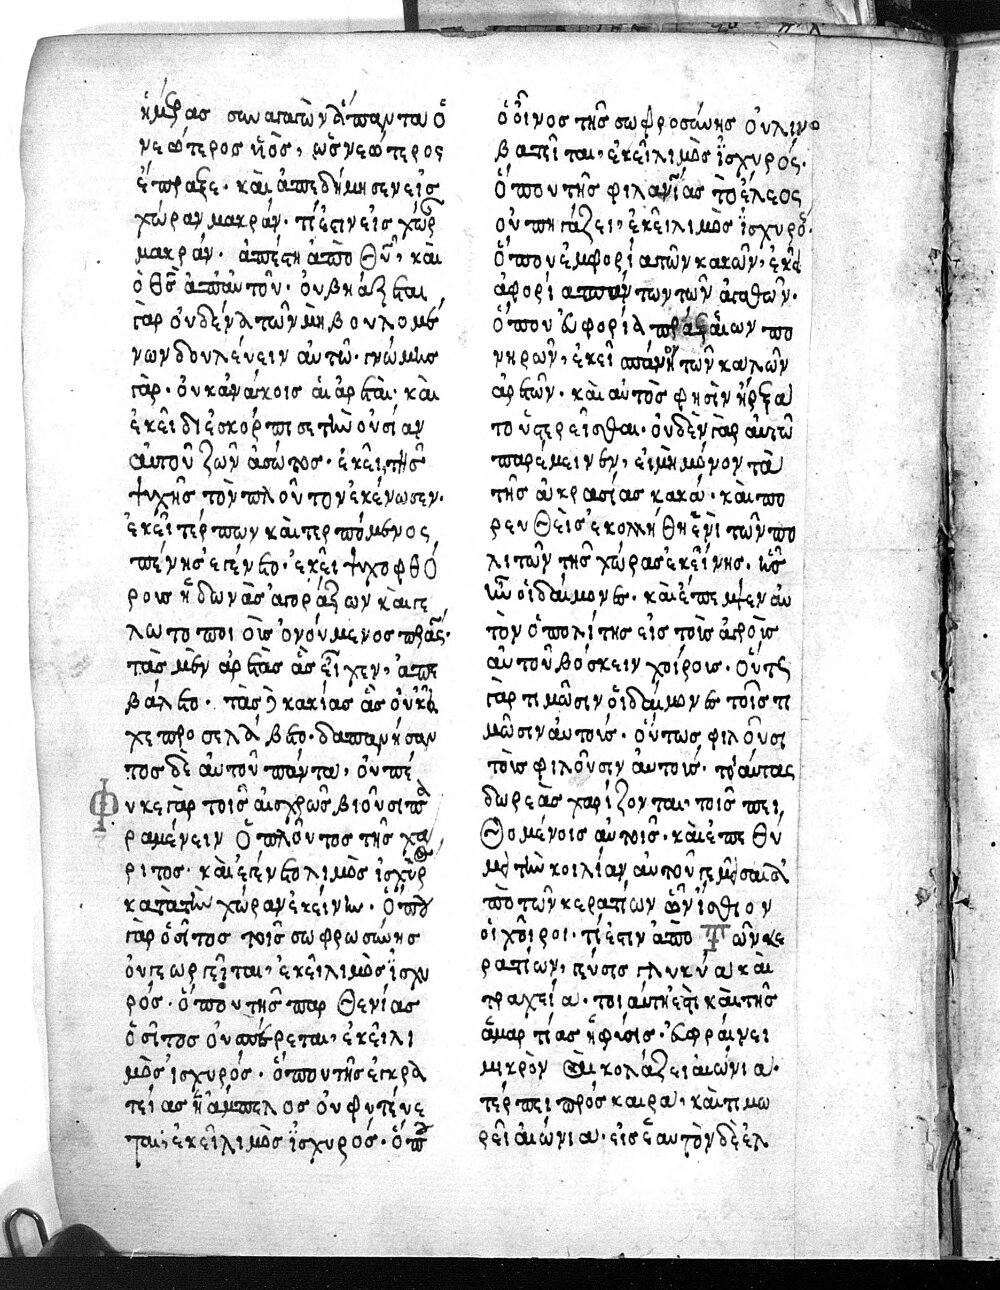 ἡμέρας συναγαγὼν ἅπαντα ὁ
νεώτερος υἱὸς, ὡς νεώτερος
ἔπραξε· καὶ ἀπεδήμησεν εἰς
χώραν μακράν· τί ἐστιν εἰς χώρ
μακράν· ἀπέστη ἀπὸ Θῦ, καὶ
ὁ Θς ἀπ αὐτοῦ· οὐ βιάζεται
γὰρ οὐδένα τῶν μὴ βουλομέ
νων δουλεύειν αὐτῶ· γνώμης
γὰρ· οὐκ ἀνάγκοις αἱ ἀρεταί· καὶ
ἐκεῖ διεσκόρπισε τὴν οὐσίαν
αὐτοῦ ζῶν ἀσώτος· ἐκεῖ τῆς
ψυχῆς τὸν πλοῦτον ἐκένωσεν·
ἐκεῖ τέρπων καὶ τερπόμενος,
πένης ἐγένετο· ἐκεῖ ψυχοφθό
ροις ἡδωνὰς ἀγοράζων καὶ γε
λωτοποι οἰς ὀνούμενος πράξ·
τὰς μὲν ἀρετὰς ἃς εἶχεν, ἀπε
βάλετο· τὰς δὲ κακίας ἃς οὐκ εἶ
χε προσελάβετο· δαπανήσαν
τος δὲ αὐτοῦ πάντα, οὐ πέ
φυκε γὰρ τοῖς αἰσχρῶς βιοῦσι πα
ραμένειν ὁ πλοῦτος τῆς χά
ριτος· καὶ ἐγένετο λιμὸς ἰσχυρ
κατὰ τὴν χώραν ἐκείνην· Ὅπου
γὰρ ὁ σῖτος τοῖς σωφρωσύνης
οὐ γεωργεῖται, ἐκεῖ λιμὸς ἰσχυ
ρός· ὅπου τῆς παρθενίας
ὁ σῖτος οὐ σπείρεται, ἐκεῖ λι
μὸς ἰσχυρός· ὅπου τῆς ἐγκρα
τείας ἡ ἄμπελος οὐ φυτεύε
ται, ἐκεῖ λιμὸς ἰσχυρός· ὅπ
ὁ οἶνος τῆς σωφροσύνης οὐ λινο
βατεῖται, ἐκεῖ λιμὸς ἰσχυρός·
Ὅπου τῆς φιλανίας τὸ ἔλεος
οὐ πηγάζει, ἐκεῖ λιμὸς ἰσχυρός·
Ὅπου ἐμφορία τῶν κακῶν, ἐκεῖ
ἀφορία πάντων τῶν ἀγαθῶν·
Ὅπου εὐφορία πράξαιων πο
νηρῶν, ἐκεῖ σπάνη τῶν καλῶν
ἀρετῶν· καὶ αὐτὸς φησὶν ἤρξατο
τοῦ ὑστερεῖσθαι· οὐδὲν γὰρ αὐτῶ
παρέμεινεν, εἰ μὴ μόνον τὰ
τῆς ἀκρασίας κακά· καὶ πο
ρευθεὶς ἐκολλήθη ἑνὶ τῶν πο
λιτῶν τῆς χώρας ἐκείνης·
οἱ δαίμονες· καὶ ἔπεμψεν αὐ
τὸν ὁ πολίτης εἰς τοῖς ἀγροῖς
αὐτοῦ βόσκειν χοίροις· Οὕτως
γὰρ τιμῶσιν οἱ δαίμονες τοῖς τι
μῶσιν αὐτοις· οὕτως φιλοῦσι
τοὶς φιλοῦσιν αὐτοις· τοιαύτας
δωρεὰς χαρίζονται, τοῖς πει,
θομένοις αὐτοῖς· καὶ ἐπεθύ
μει τὴν κοιλίαν αὐτοῦ γεμίσαι ἀ
πὸ τῶν κερατίων ὧν ἤσθιον
οἱ χοῖροι· τί ἐστιν ἀπὸ τῶν κε
ρατίων, γεύσις γλυκύα καὶ
τραχεία· τοιαύτη ἐστὶ καὶ τῆς
ἁμαρτίας ἡ φύσις· εὐφραίνει
μικρὸν καὶ κολάζει αἰώνια·
τέρπει πρόσκαιρα· καὶ τιμω
ρεῖ αἰώνια· εἰς ἑαυτὸν δὲ ἐλ